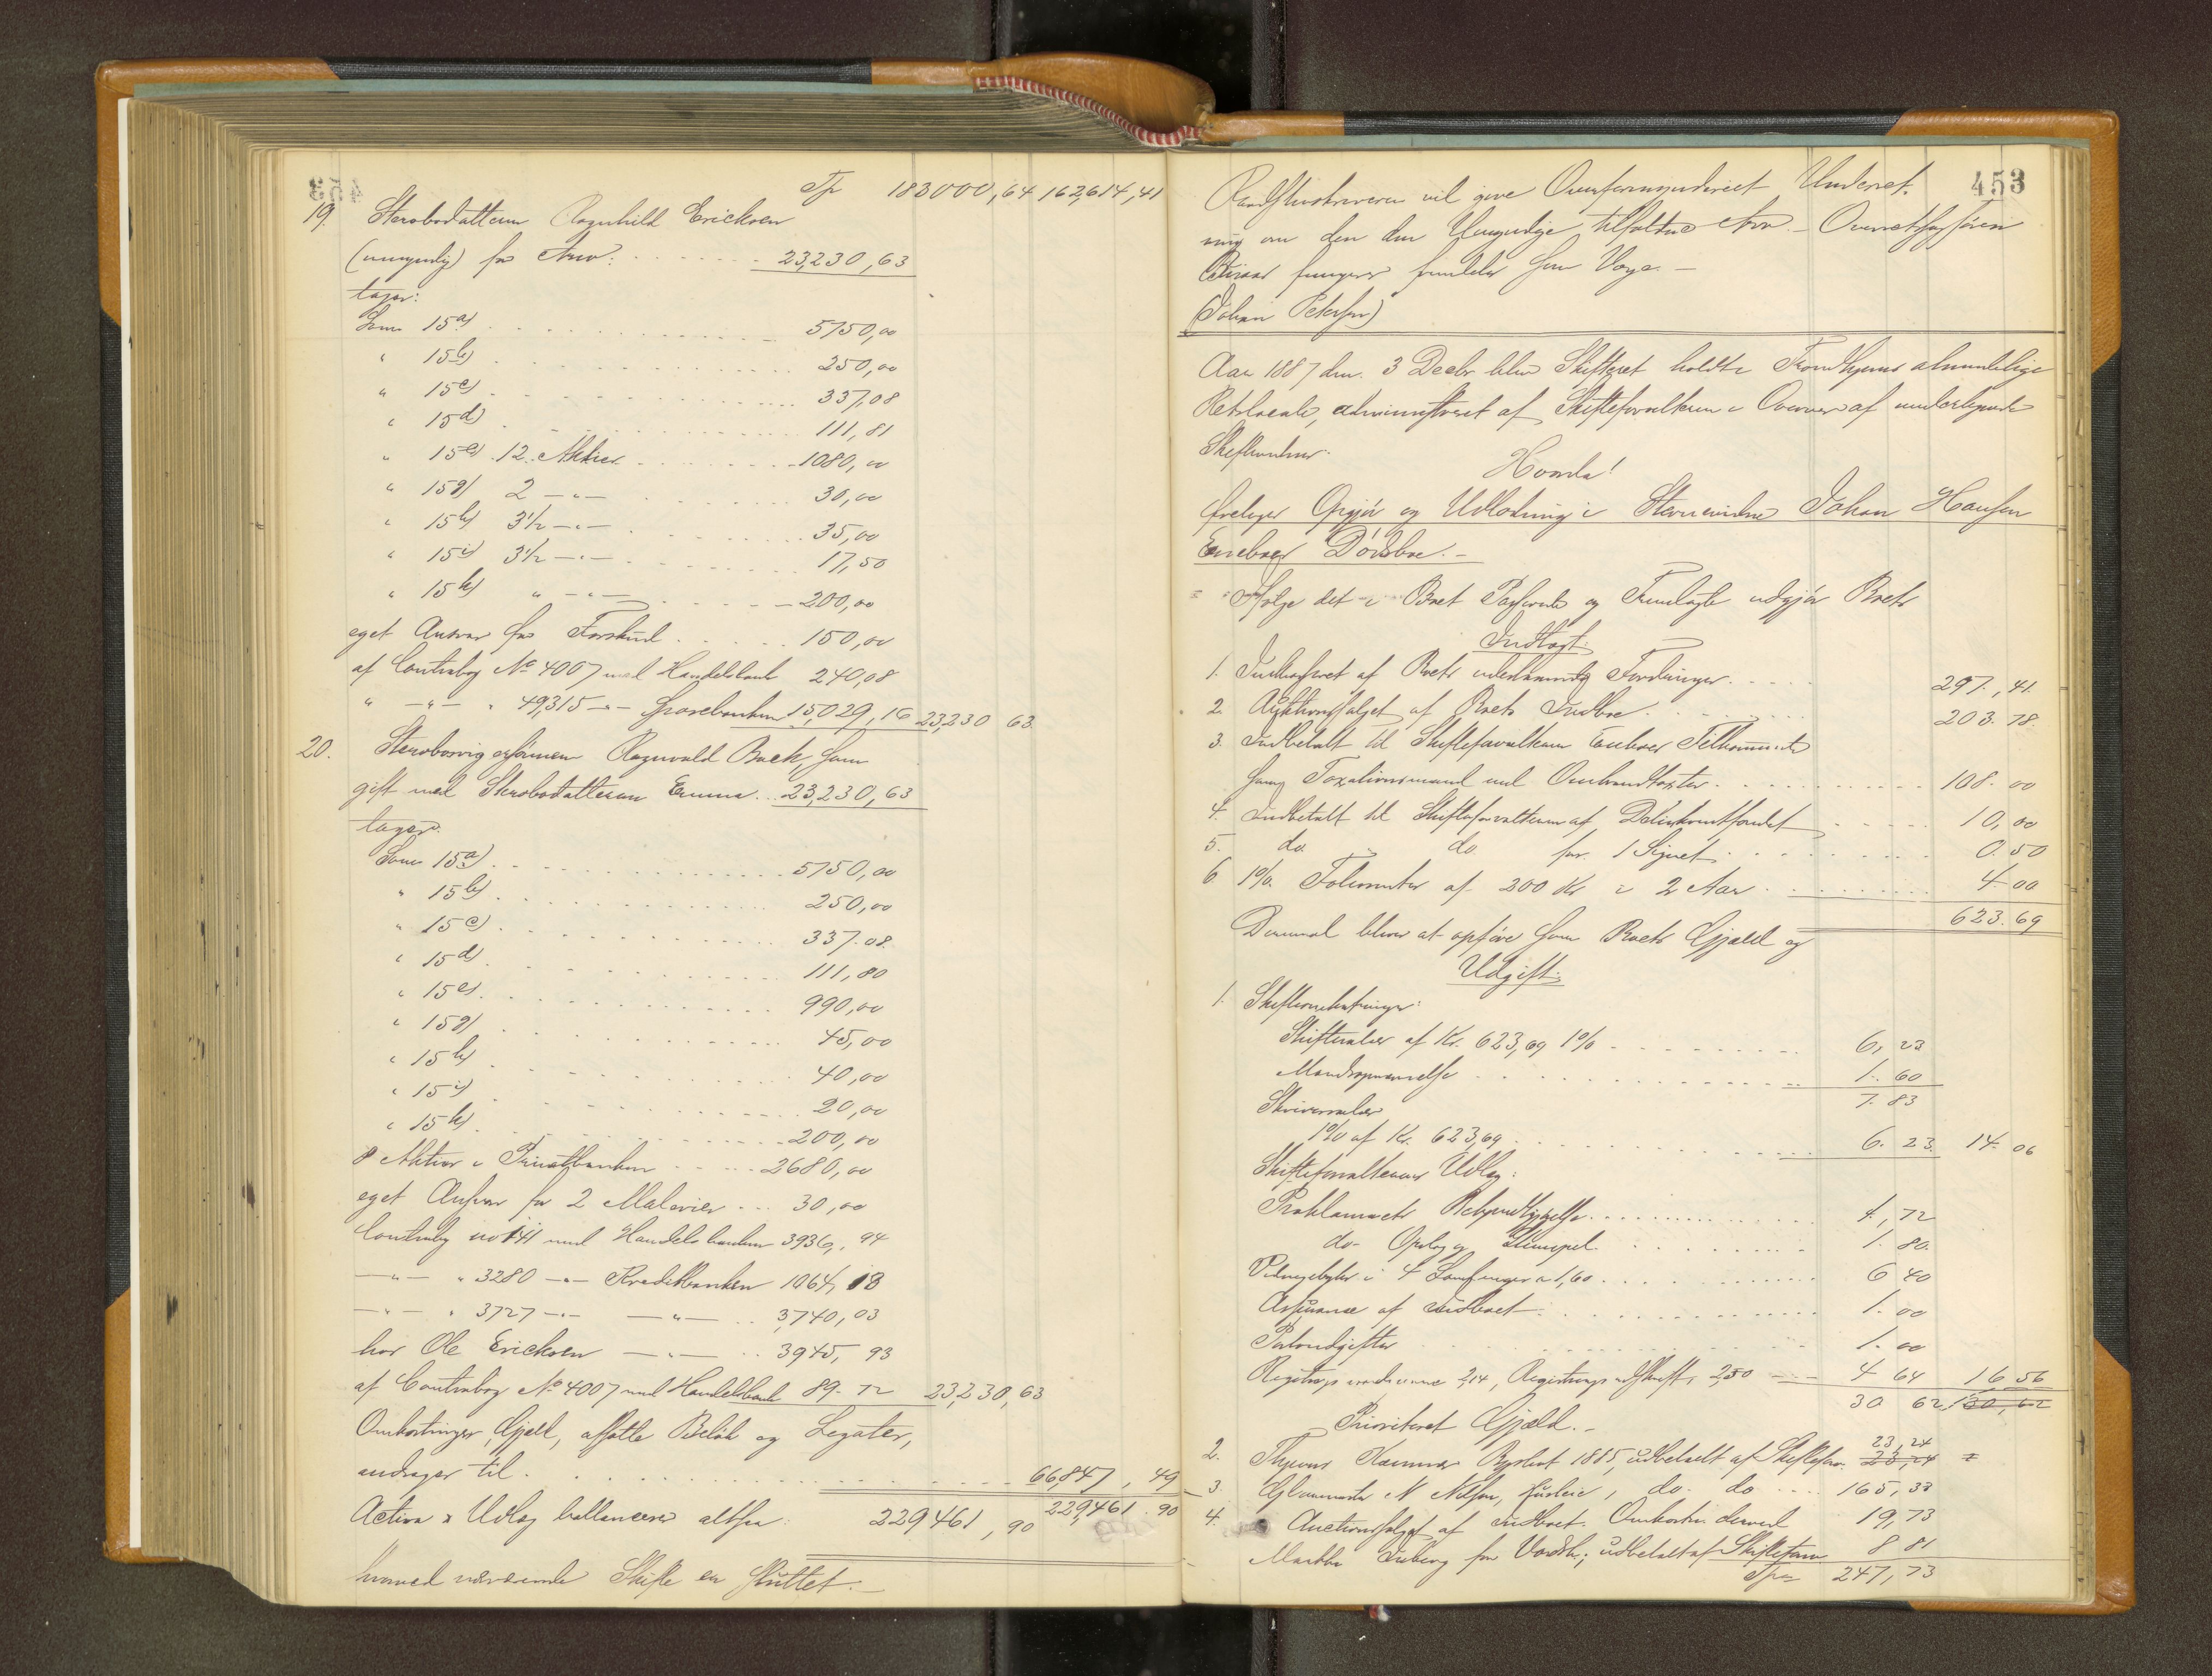 Tp 183000,64 162,614,41
19. Sterbodatteren Ragnhild Ericksen
(umyndig) for Arv. 23,230,63
tager:
Som 15a) 5750,00
" 15b) 250,00
" 15c) 337,08
" 15d) 111,81
" 15e) 12 Aktier 1080,00
" 15g) 2 —"— 30,00
" 15h) 3½ —"— 35,00
" 15i) 3½ —"— 17,50
" 15k) " —"— 200,00
eget Ansvar for Forskud 150,00
af Contrabog No 4007 med Handelsbank 240,08
" —"— " 49,315 —"— Sparebanken 15,029,16 23,230 63
20. Sterbosvigersönnen Ragnvald Bock, som
gift med Sterbodatteren Emma 23,230,63
tager:
Som 15a) 5750,00
" 15b) 250,00
" 15c) 337.08
" 15d) 111,80
" 15e) 990,00
" 15g) 45,00
" 15h) 40,00
" 15i) 20,00
" 15k) 200,00
8 Aktier i Privatbanken 2680,00
eget Ansvar for 2 Malerier 30,00
Contrabog no 141 med Handelsbanken 3936,94
—"— " 3280 —"— Kreditbanken 1064,13
—"— " 3727 —"— —"— 3,740,03
hos Ole Ericksen —"— 3945,93
af Contrabog No 4007 med Handelsbank 89.72 23,230,63
Omkostninger, Gjæld, afsatte Belöb og Legater,
andrager til 66,847,49
Activa & Udlæg ballancerer altsaa: 229461,90 229,461.90
hvormed nærværende Skifte er sluttet.—
453
vil give Overformynderiet Underret-
ning om den den Umyndige tilfaldne Arv.— Overretssagfører
fungerer fremdeles som Værge.—
(Johan Petersen)
Aar 1887 den 3 Decbr blev Skifteret holdt i Trondhjems almindelige
Retslocale, administreret af Skifteforvalteren i Overvær af underlegnede
Skiftevidner.
Hvorda!
foretages Opgjör og Udlodning i Stervuidne Johan Hansen
Eneboes Dödsbo.—
Ifølge det i Boet Passerede og Fremlagte udgjör Boets
Indtægt:
1. Indkasseret af Boets udestaaende Fordringer 297.,41.
2. Auktionssalget af Boets Indbo 203.78.
3. Indbetalt til Skifteforvalteren Eneboes Tilkommende
som Taxationsmand ved Ombrandtaxter 108.00
4. Indbetalt til Skifteforvalteren af Delinkventfondet 10,00
5. do. do for 1 Signet 0.50
6. 1% Foliorenter af 200 Kr i 2 Aar 4.00
623.69
Derimod bliver at opföre som Boets Gjæld og
Udgift:
1. Skifteomkostninger:
Skiftesalær af Kr. 623,69 1% 6,23
Mandsopnævnelse 1.60
7.83
Skriversalær
1% af Kr. 623,69 6.23 14.06
Skifteforvalterens Udlæg:
Proklamaets Bekjendtgjørelse 4,72
do- Opslag og Stempel 1.80
Vidnegebyhr i 4 Samlinger a 1,60 6 40
Assurance af Indboet 1.00
Portoudgifter 1.00
Registrings 2,14, Registrings udskrift 2,50 4 64 16,56
30 62 130,62
Prioriteret Gjæld.—
2. Thjems Kæmner Byskat 1885, udbetalt af Skiftefor. 23,24
3. N Nilsen, Husleie, do- do 165,33
4. Auctionssalget af Indboet. Omkostn. derved 19,73
Marthe for Vadsk; udbetalt af Skiftefor. 8 81
Tpr 247,73